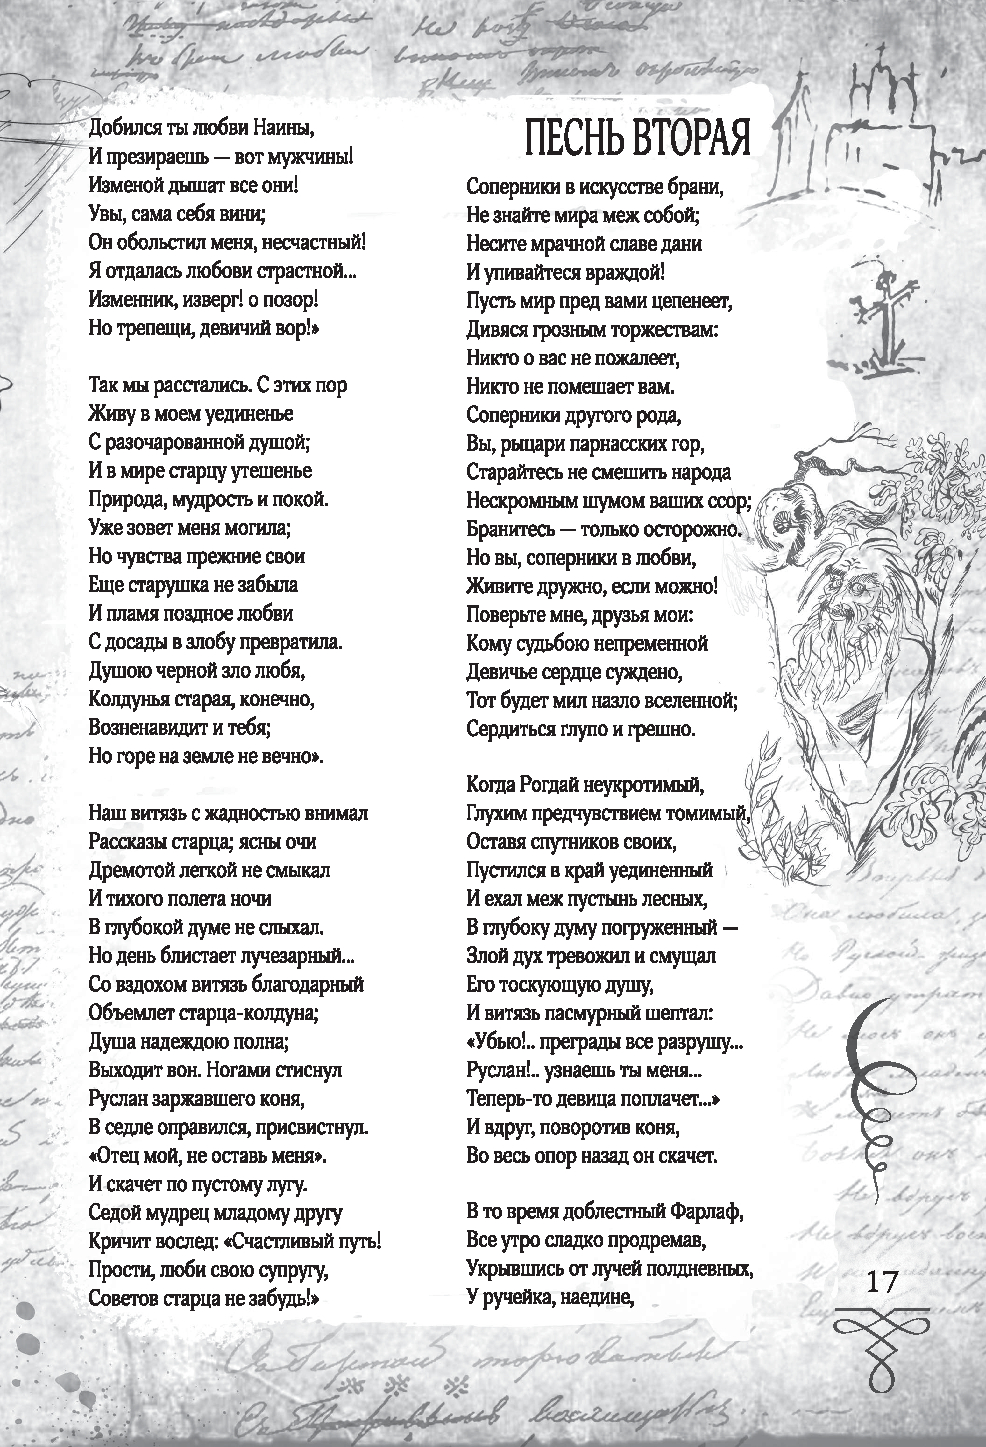 Добился ты любви Наины,
И презираешь — вот мужчины!
Изменой дышат все они!
Увы, сама себя вини;
Он обольстил меня, несчастный!
Я отдалась любови страстной...
Изменник, изверг! о позор!
Но трепещи, девичий вор!»

Так мы расстались. С этих пор
Живу в моем уединенье
С разочарованной душой;
И в мире старцу утешенье
Природа, мудрость и покой.
Уже зовет меня могила;
Но чувства прежние свои
Еще старушка не забыла
И пламя поздное любви
С досады в злобу превратила.
Душою черной зло любя,
Колдунья старая, конечно,
Возненавидит и тебя;
Но горе на земле не вечно».

Наш витязь с жадностью внимал
Рассказы старца; ясны очи
Дремотой легкой не смыкал
И тихого полета ночи
В глубокой думе не слыхал.
Но день блистает лучезарный...
Со вздохом витязь благодарный
Объемлет старца-колдуна;
Душа надеждою полна;
Выходит вон. Ногами стиснул
Руслан заржавшего коня,
В седле оправился, присвистнул.
«Отец мой, не оставь меня».
И скачет по пустому лугу.
Седой мудрец младому другу
Кричит вослед: «Счастливый путь!
Прости, люби свою супругу,
Советов старца не забудь!»

ПЕСНЬ ВТОРАЯ
Соперники в искусстве брани,
Не знайте мира меж собой;
Несите мрачной славе дани
И упивайтеся враждой!
Пусть мир пред вами цепенеет,
Дивяся грозным торжествам:
Никто о вас не пожалеет,
Никто не помешает вам.
Соперники другого рода,
Вы, рыцари парнасских гор,
Старайтесь не смешить народа
Нескромным шумом ваших ссор;
Бранитесь — только осторожно.
Но вы, соперники в любви,
Живите дружно, если можно!
Поверьте мне, друзья мои:
Кому судьбою непременной
Девичье сердце суждено,
Тот будет мил назло вселенной;
Сердиться глупо и грешно.

Когда Рогдай неукротимый,
Глухим предчувствием томимый,
Оставя спутников своих,
Пустился в край уединенный
И ехал меж пустынь лесных,
В глубоку думу погруженный —
Злой дух тревожил и смущал
Его тоскующую душу,
И витязь пасмурный шептал:
«Убью!.. преграды все разрушу...
Руслан!.. узнаешь ты меня...
Теперь-то девица поплачет...»
И вдруг, поворотив коня,
Во весь опор назад он скачет.

В то время доблестный Фарлаф,
Все утро сладко продремав,
Укрывшись от лучей полдневных,
У ручейка, наедине,
17